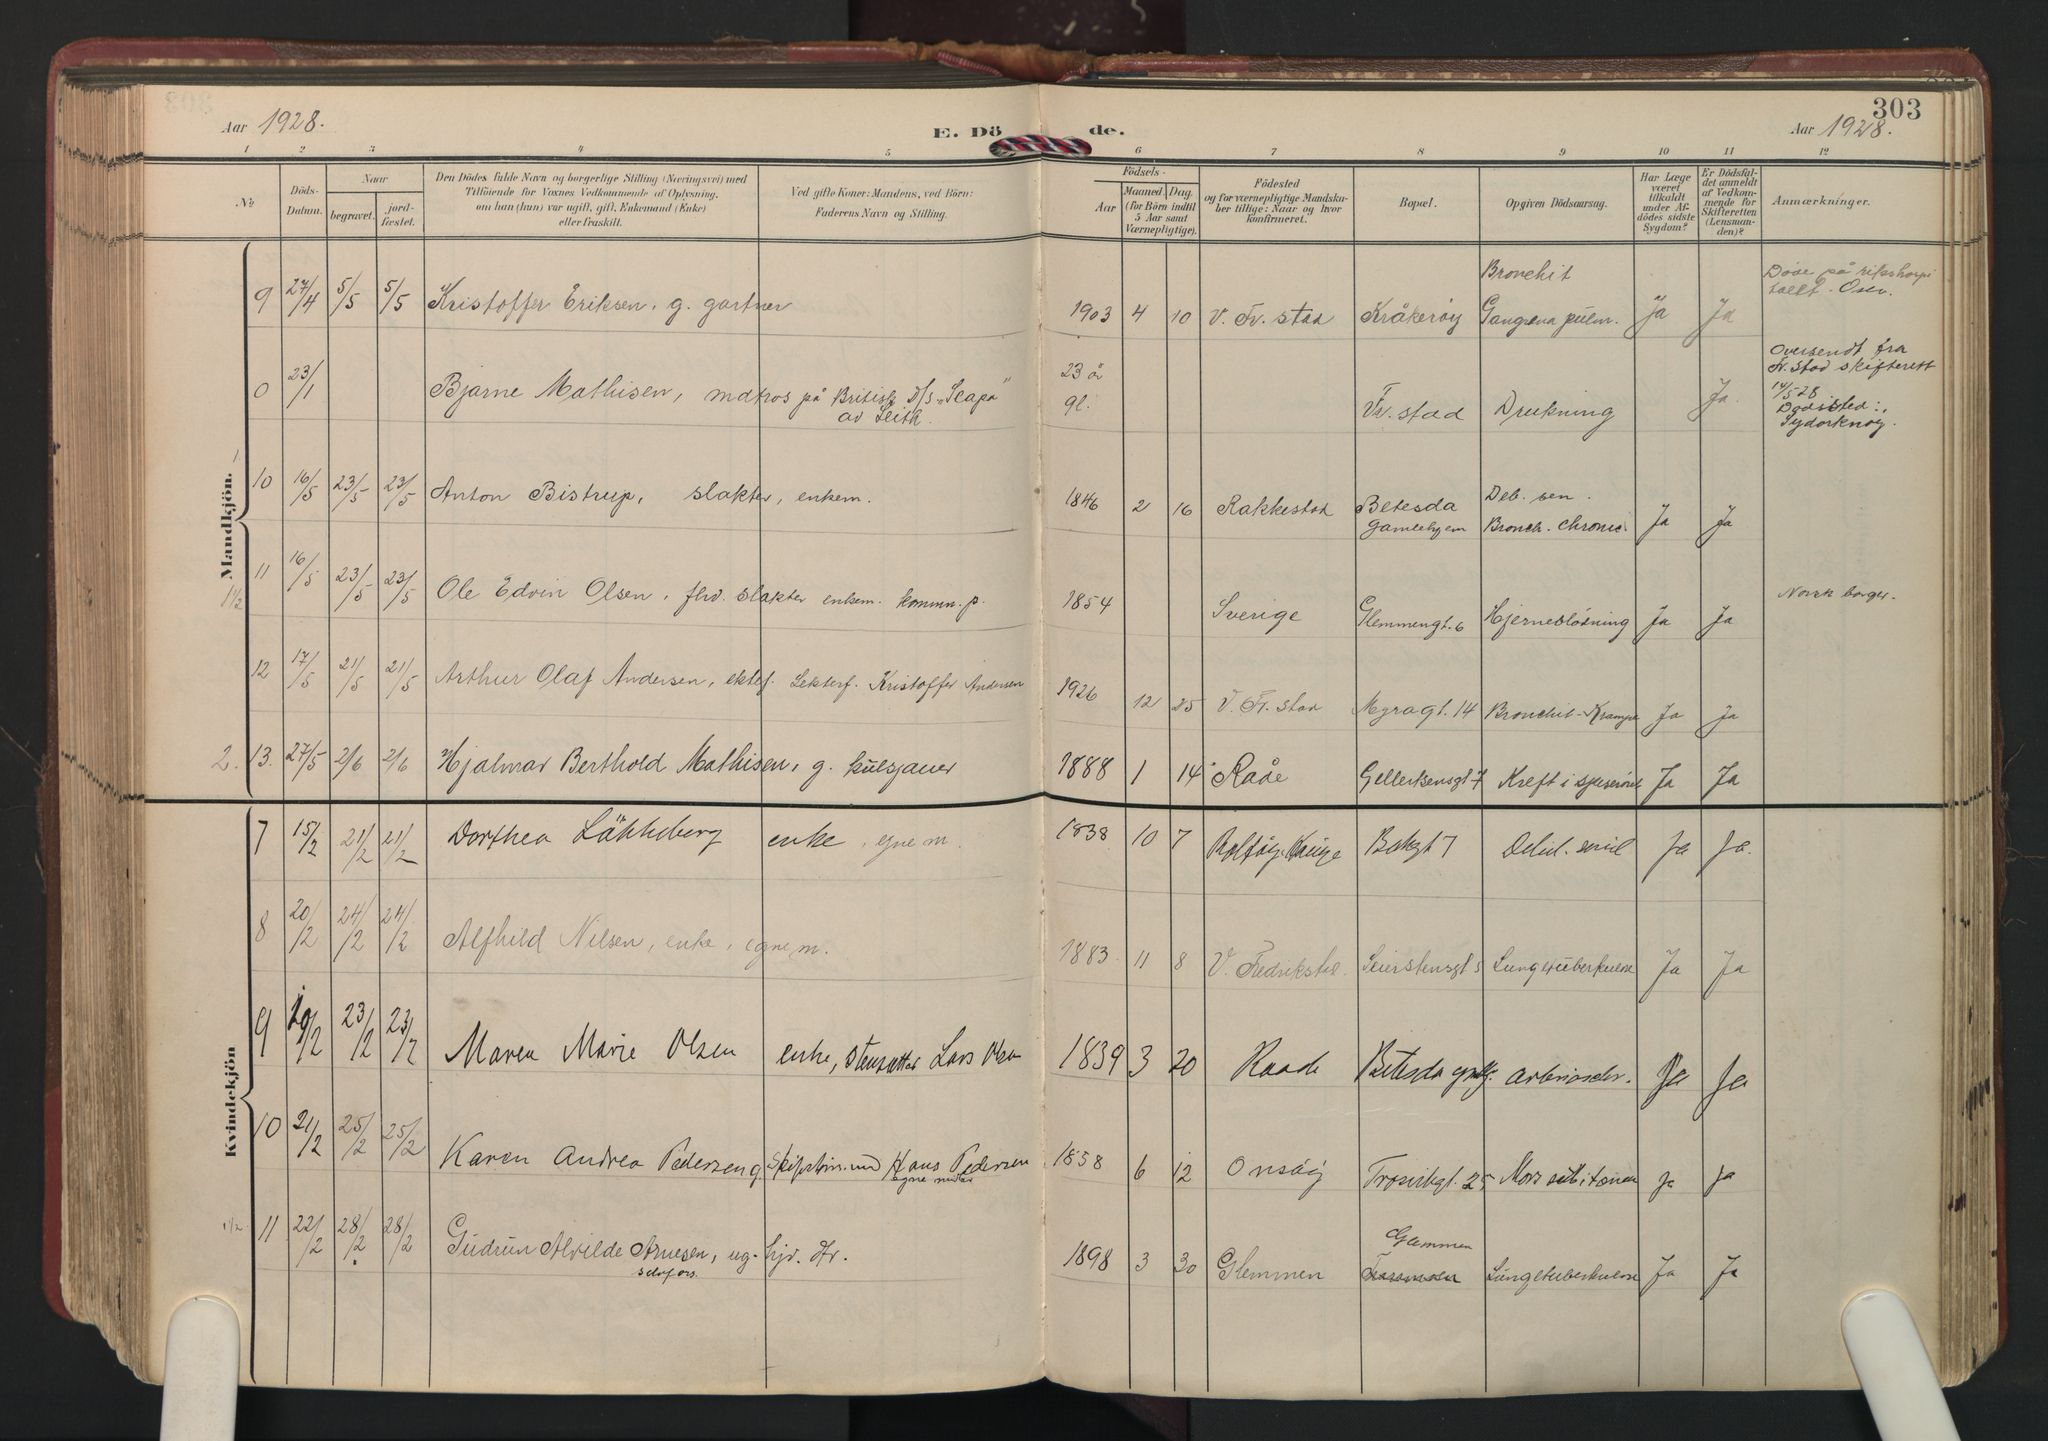 303
Aar 1928.
E. Dö de.
Aar 1928.
1 2 3 4 5 6 7 8 9 10 11 12
No
Döds-Datum.
Naar
begravet.
jord-fæstet.
Den Dödes fulde Navn og borgerlige Stilling (Næringsvei) med
Tilföiende for Voxnes Vedkommende af Oplysning,
om han (hun) var ugift, gift, Enkemand (Enke)
eller fraskilt.
Ved gifte Koner: Mandens, ved Börn:
Faderens Navn og Stilling.
Födsels-
Aar
Maaned Dag
(for Börn indtil
5 Aar samt
Værnepligtige).
Födested
og for værnepligtige Mandsku-
ber tillige: Naar og hvor
konfirmeret.
Bopæl.
Opgiven Dödsaarsag.
Har Læge
været
tilkaldt
under Af-
dödes sidste
Sygdom?
Er Dödsfal-
det anmeldt
af Vedkom-
mende for
Skifteretten
(Lensman-
den)?
Anmærkninger.
Mandkjön.
9 27/4 5/5 5/5 Kristoffer Eriksen, g. gartner 1903 4 10 V. Fr. stad Kråkerøy Bronchit Gangrena pulm. Ja Ja Døde på rikshospi
tallt. Oslo.
0 23/1 Bjarne Mathisen, matros på British D/S "Scapa"
av Leith. 23 år gl. Fr. stad Drukning Ja. Oversendt fra
Fr. stad skifterett
14/5-28
Dødssted:
10 16/5 23/5 23/5 Anton Bistrup, slakter, enkem. 1846 2 16 Rakkestad Betesda
Gamlehjem Deb. sen.
Bronch. chronic. Ja Ja
11 16/5 23/5 23/5 Ole Edvin Olsen, fhv. slakter enkem. komm. p. 1854 Sverige Glemmengt. 6 Hjerneblødning Ja Ja Norsk borger.
1 1/2
12 17/5 21/5 21/5 Arthur Olaf Andersen, ektef. Kristoffer Andersen 1926 12 25 V. Fr. stad Myragt. 14 Bronchit-Krampe Ja Ja
2. 13. 27/5 2/6 2/6 Hjalmar Berthold Mathisen, g. kulsjauer 1888 1 14 Råde Gellertsensgt 7 Kreft i spiserøret Ja Ja
Kvindekjön
7 15/2 21/2 21/2 Dorthea Løkkeberg enke, egne m. 1838 10 7 Rolfsøy Bakgt 7 Debil. senil Ja Ja.
8 20/2 24/2 24/2 Alfhild Nilsen, enke, egne m. 1883 11 8 V. Fredrikstad. Seierstensgt 5 Lungetuberkulose Ja Ja
9 19/2 23/2 23/2 Maren Marie Olsen enke, stensætter Lars Olsen 1839 3 20 Raade Betesda gmlhj. arteriosclr. Ja Ja
10 21/2 25/2 25/2 Karen Andrea Pedersen g. Skipstøm.md Hans Pedersen
egne midler 1858 6 12 Onsøy Trosvikgt. 25 Mors subitanea Ja Ja
1/2 11 22/2 28/2 28/2 Gudrun Alvilde Arnesen, ug. hjv. dtr.
selvfors. 1898 3 30 Glemmen Glemmen Lungetuberkulose Ja Ja